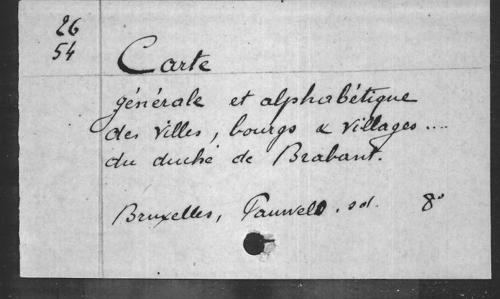 26
54
Carte
générale et alphabétique
des villes, bourgs & villages....
du duché de Brabant.
Bruxelles, Pauwels. sd. 8°